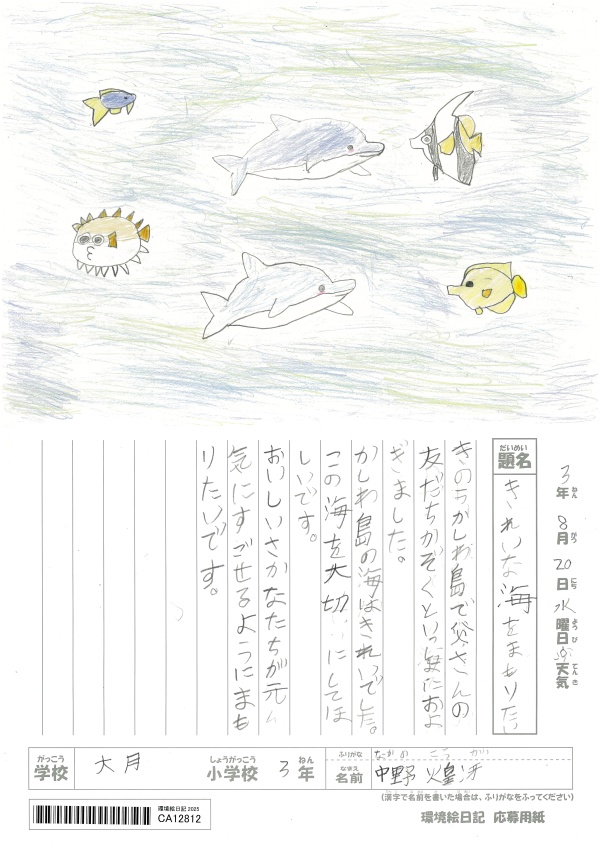 3年 8月 20日 水曜日 天気
題名 きれいな海をまもりたい
だいめい
ねん がつ にち ようび てんき
きのうかしわ島で父さんの
友だちかぞくといっしょにおよ
ぎました。
かしわ島の海はきれいでした。
この海を大切にしてほ
しいです。
おいしいさかなたちが元
気にすごせるようにまも
りたいです。
がっこう しょうがっこう ねん
学校 大月 小学校 3年
ふりがな なかの こうが
なまえ
名前 中野 煌冴
(漢字で名前を書いた場合は、ふりがなをふってください)
環境絵日記 2025
CA12812
環境絵日記 応募用紙